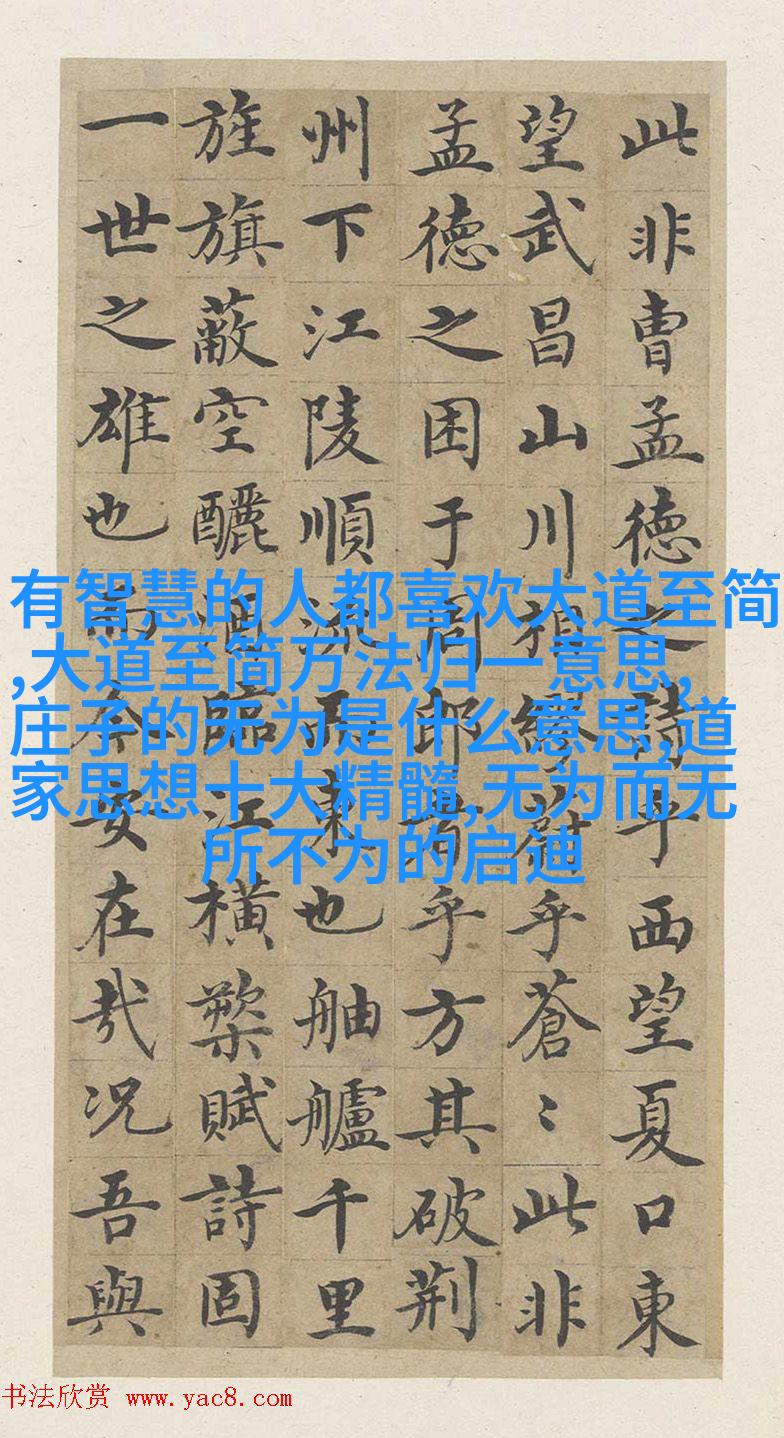 此非曹孟德之詩乎西望夏口東
望武昌山川相繆乎蒼〻此非
孟德之困于周郎者乎方其破荆
州下江陵順流而東也舳艫千里
旌旗蔽空釃酒臨江橫槊賦詩固
一世之雄也而今安在哉況吾與
有智慧的人都喜欢大道至简
,大道至简万法归一意思,
庄子的无为是什么意思,道
家思想十大精髓,无为而无
所不为的启迪
书法欣赏 www.yac8.com